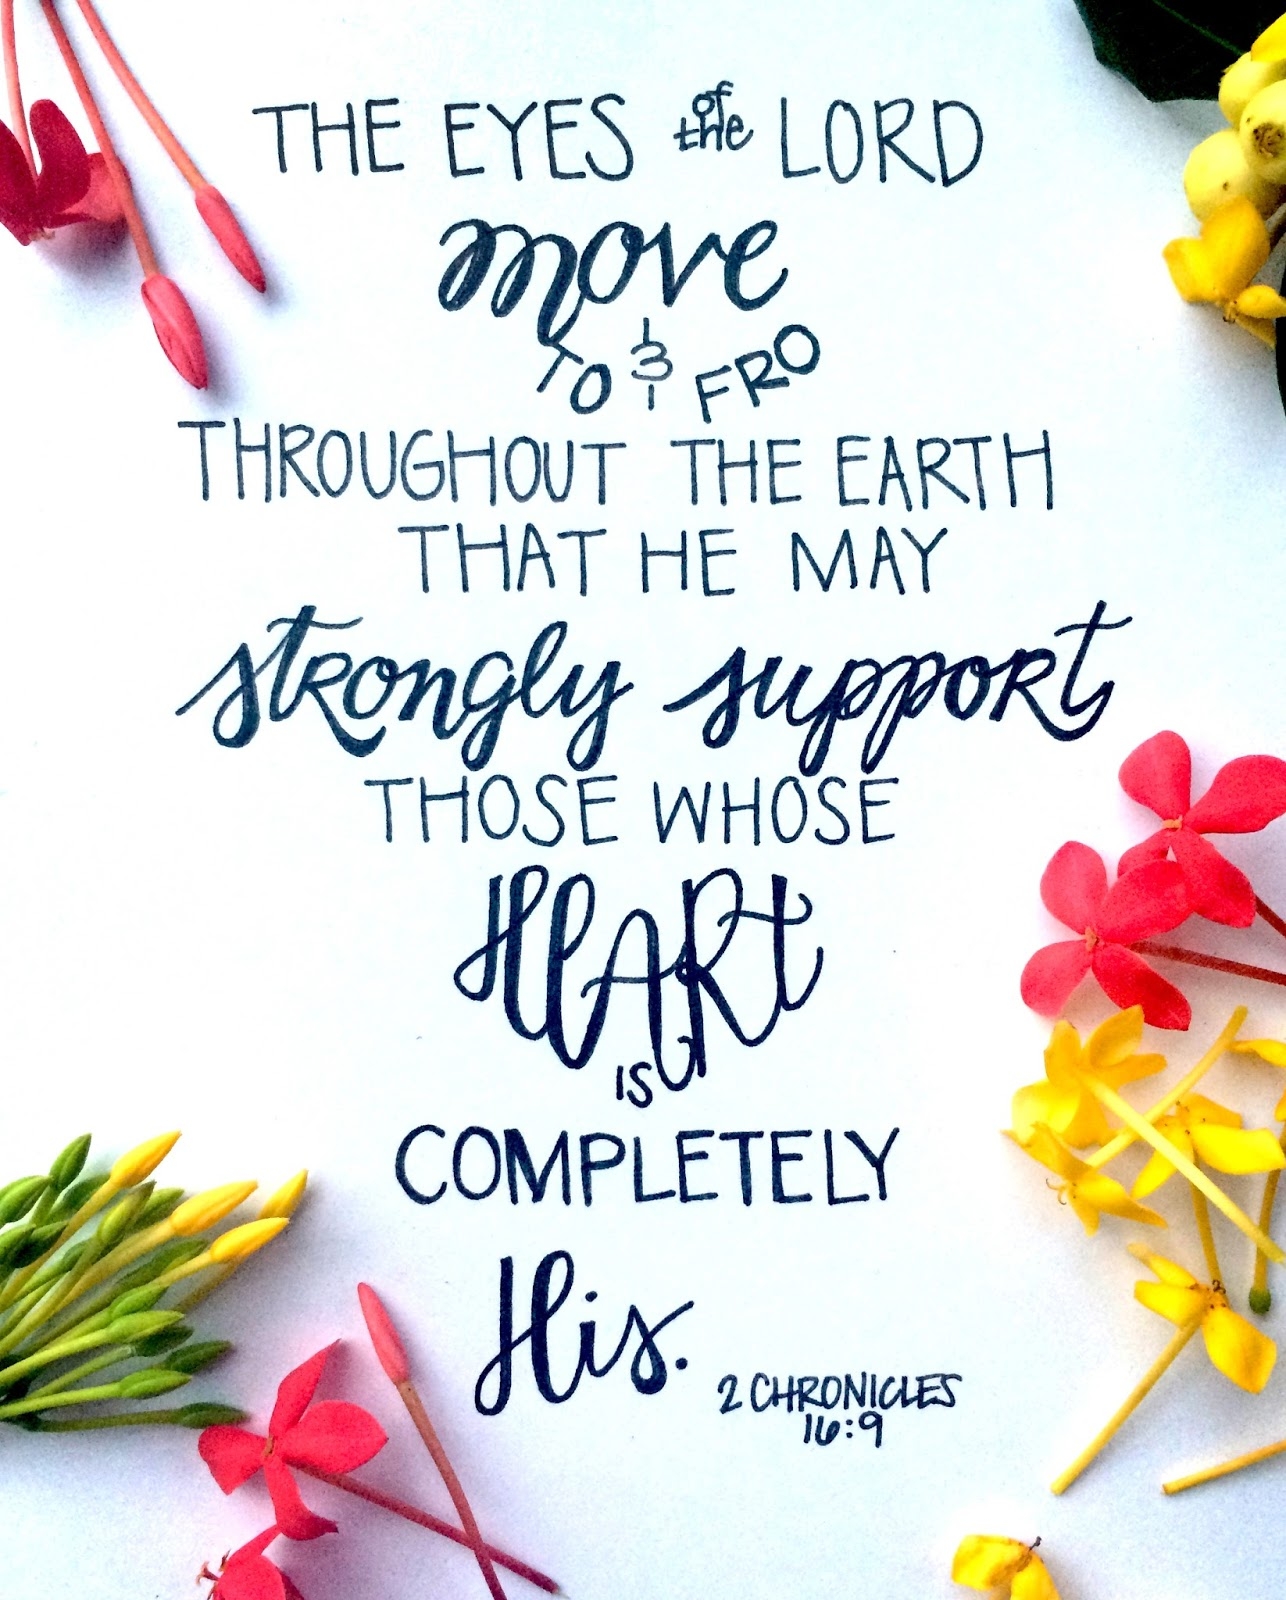 THE EYES of the LORD
move
TO & FRO
THROUGHOUT THE EARTH
THAT HE MAY
strongly support
THOSE WHOSE
HEART
IS
COMPLETELY
His.
2 CHRONICLES
16:9